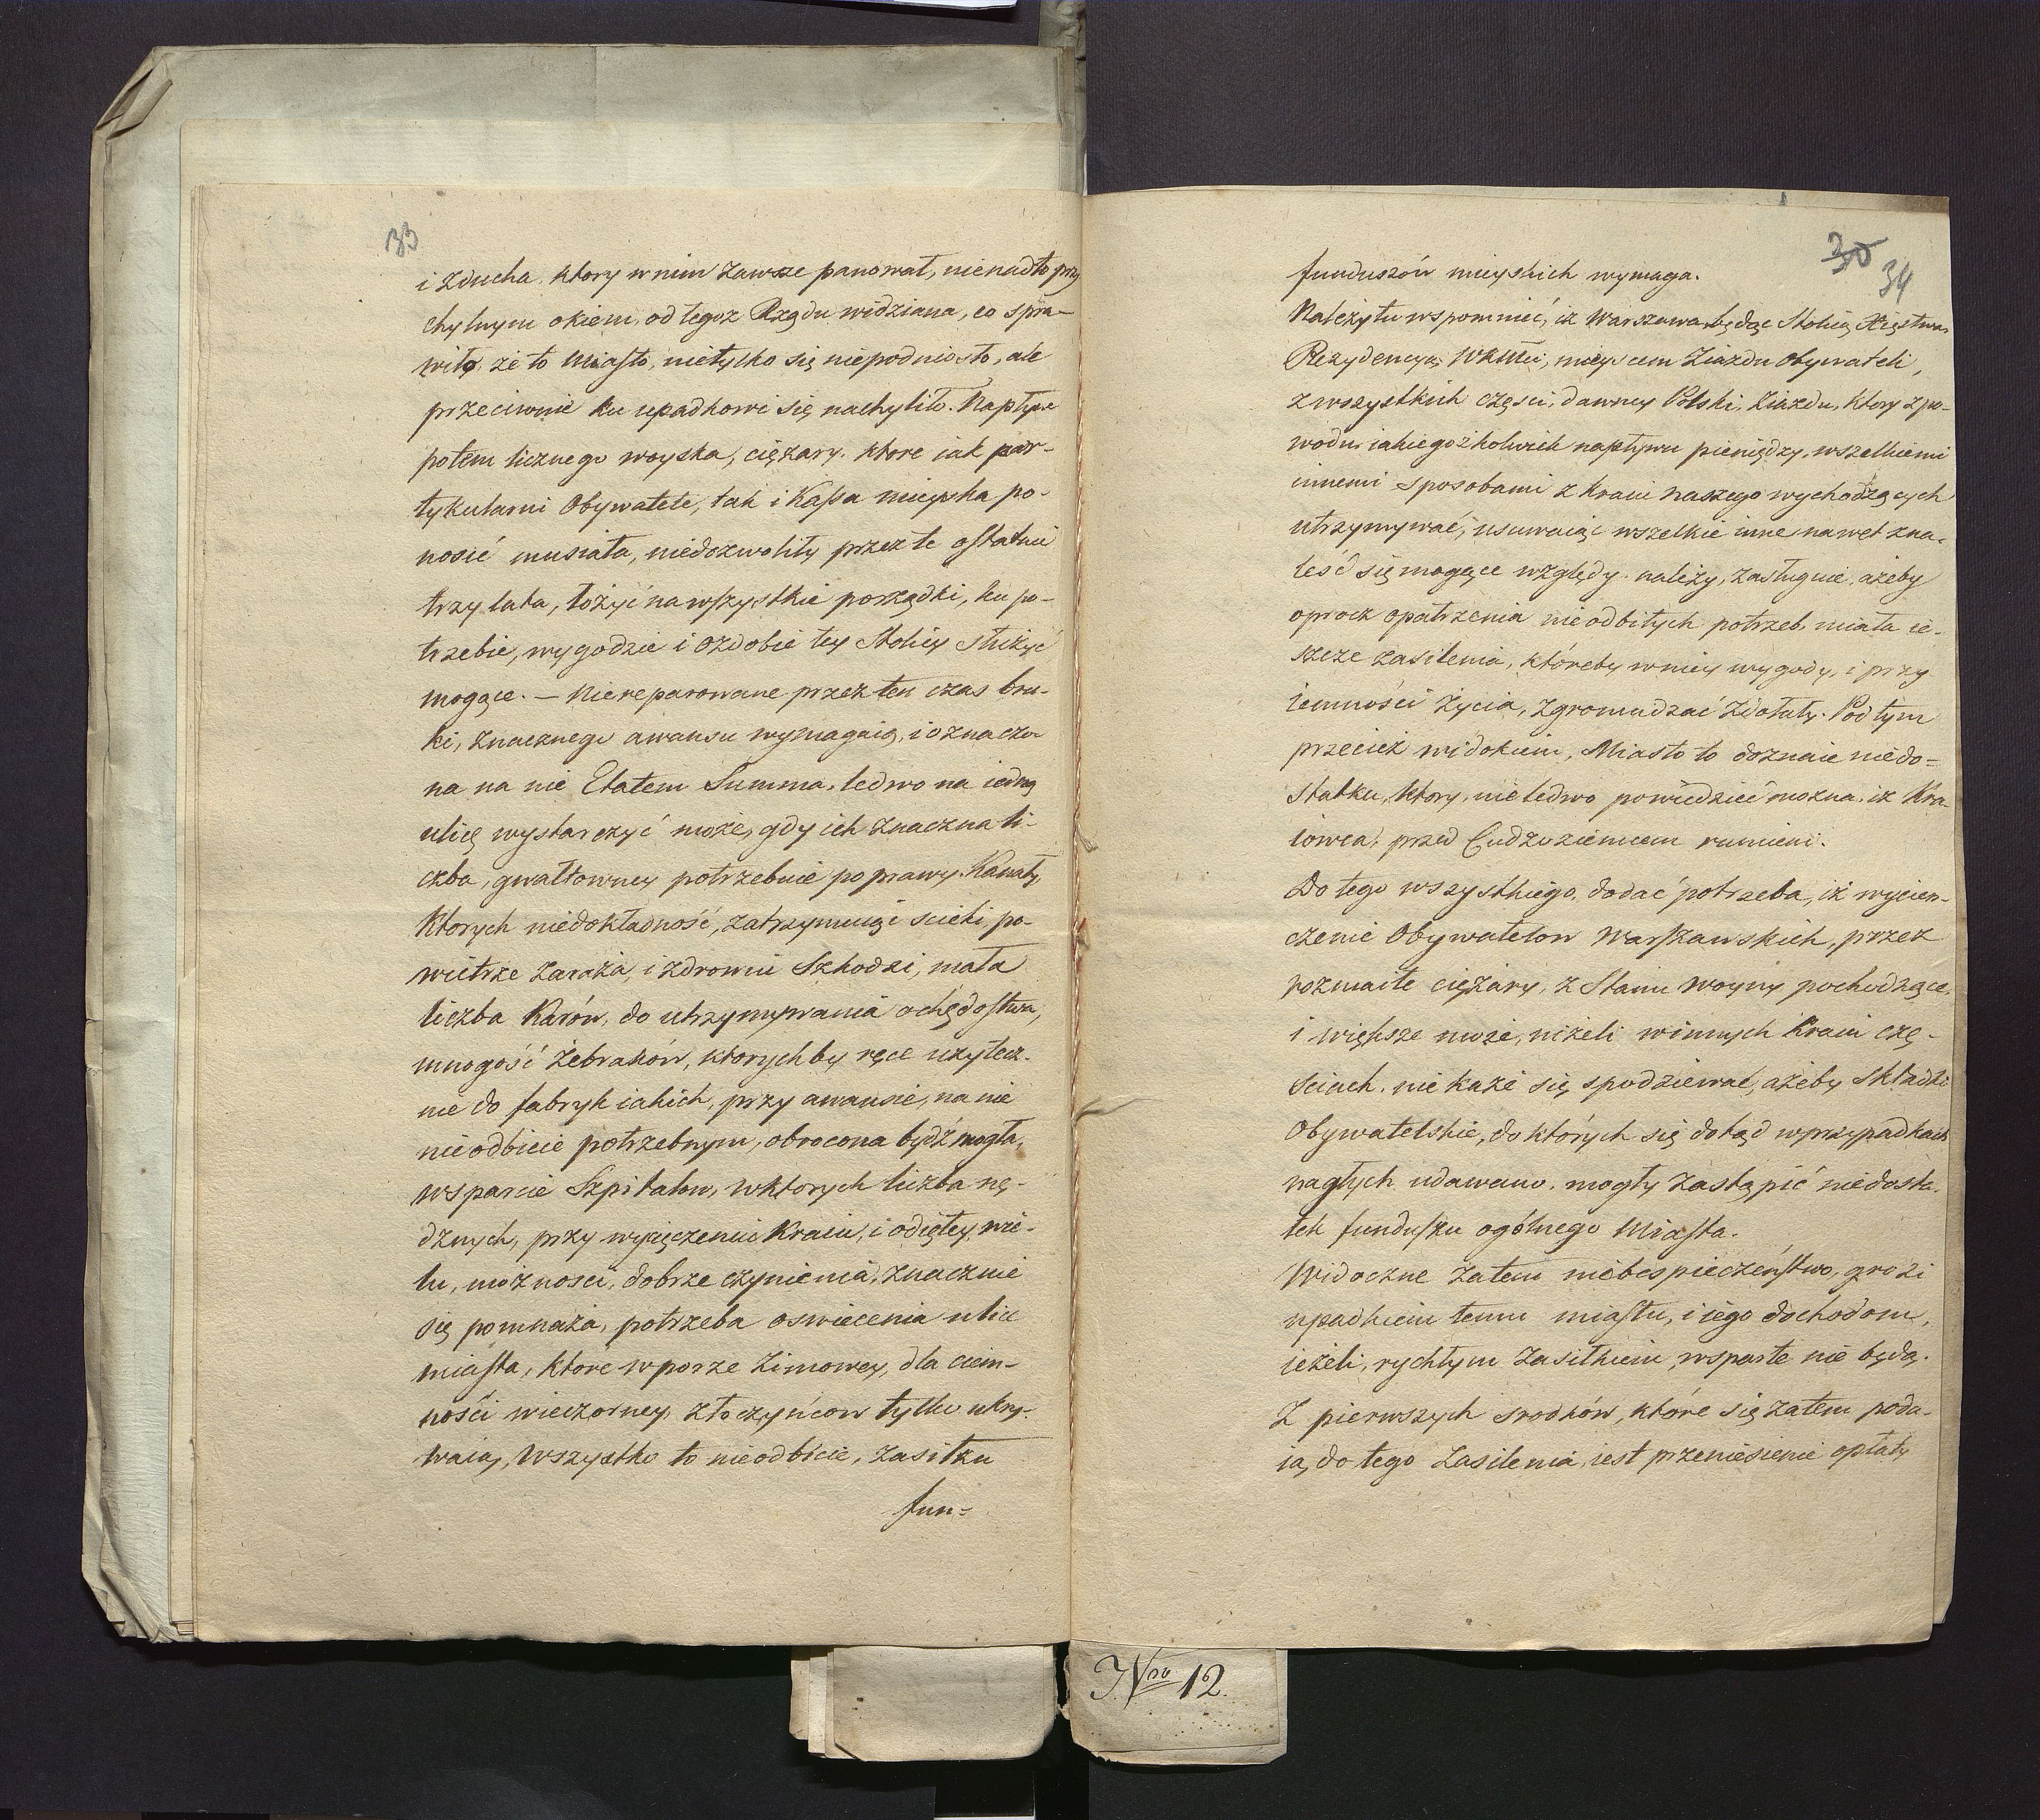 33
i zducha, ktory wnim zawsze panował, nienadto przy
chylnym okiem, od tegoz Rządu widziana, co spra-
wiło, że to Miasto, nietylko się niepodniosło, ale
przeciwnie ku upadkowi się nachyliło. Napływ
potem licznego woyska, ciężary, ktore iak par-
tykularni Obywatele, tak i Kassa mieyska po-
nosić musiała, niedozwoliły przez te ostatnie
trzy lata, łożyć na wszystkie porządki, ku po-
trzebie, wygodzie i ozdobie tey Stolicy służyć
mogące. — Niereparowane przez ten czas bru-
ki, znacznego awansu wymagaią, i oznaczo-
na na nie Etatem Summa, ledwo na iedną
ulicę wystarczyć może, gdy ich znaczna li-
czba, gwałtowney potrzebuie poprawy. Kanały,
Ktorych niedokładność, zatrzymuiąc scieki, po-
wietrze zaraża, i zdrowiu Szkodzi, mała
liczba Karów, do utrzymywania ochędostwa,
mnogość żebraków, którychby ręce użytecz-
nie do fabryk iakich, przy awansie, na nie
nieodbicie potrzebnym, obrocona bydź mogła,
wsparcie Szpitalow, wktorych liczba nę-
dznych, przy wycięczeniu Kraiu, i odiętey wie-
lu, możnosci, dobrze czynienia, znacznie
się pomnaża, potrzeba oswiecenia ulic
miasta, ktore w porze Zimowey, dla ciem-
ności wieczorney, złoczyńcow tylko ukry-
waią, Wszystko to nieodbicie, zasiłku
fun-
30
34
funduszów mieyskich wymaga.
Należy tu wspomnieć, iż Warszawa, będąc Stolicą Xięstwa,
Rezydencyą WKMci, mieyscem Ziazdu Obywateli,
z wszystkich części, dawney Polski, Ziazdu, ktory z po-
wodu iakiegożkolwiek napływu pieniędzy, wszelkiemi
innemi sposobami z Kraiu naszego wychodzących
utrzymywać, usuwaiąc wszelkie inne nawet zna-
leść się mogące względy należy, zasługuie, ażeby
oprocz opatrzenia nieodbitych potrzeb, miała ie-
szcze zasilenia, któreby wniey wygody, i przy
iemności Życia, zgromadzać zdołały. Pod tym
przecież widokiem, Miasto to doznaie niedo-
statku, ktory, nieledwo powiedzieć mozna, iż Kra-
iowca, przed Cudzoziemcem rumieni.
Do tego wszystkiego, dodać potrzeba, iż wycien-
czenie Obywatelow Warszawskich, przez
rozmaite ciężary, z Stanu Woyny pochodzące,
i większe może, niżeli winnych Kraiu czę-
ściach, nie każe się spodziewać, ażeby Składki
Obywatelskie, do których się dotąd wprzypadkach
nagłych udawano, mogły zastąpić niedosta-
tek funduszu ogólnego Miasta.
Widoczne zatem niebespieczeństwo, grozi
upadkiem temu miastu, i iego dochodom,
ieżeli, rychłym zasiłkiem, wsparte nie będą.
Z pierwszych srodków, które się zatem poda-
ią, do tego Zasilenia, iest przeniesienie opłaty
Nro 12.